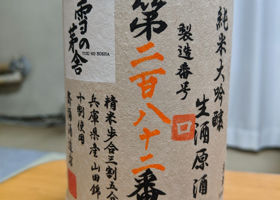 純米大吟醸
生酒原酒
製造番号
第二百八十二番
雪の茅舎
YUKI NO BOSHA
精米歩合三割五分
兵庫県産山田錦
十割使用